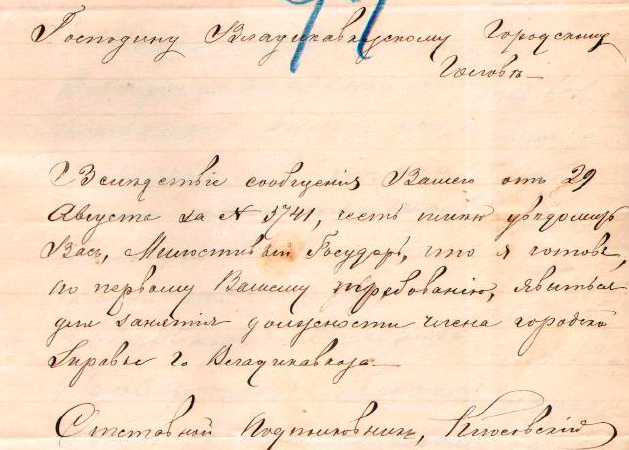 Господину Владикавкузскому Городскому
Головѣ
Вслѣдствіе сообщенія Вашего отъ 29
Августа за № 3741, честь имѣю увѣдомить
Васъ, Милостивый Государь, что я готовъ,
по первому Вашему требованію, явиться
для занятія должности члена городской
Управы г. Владикавказа.
Отставной Подполковникъ,